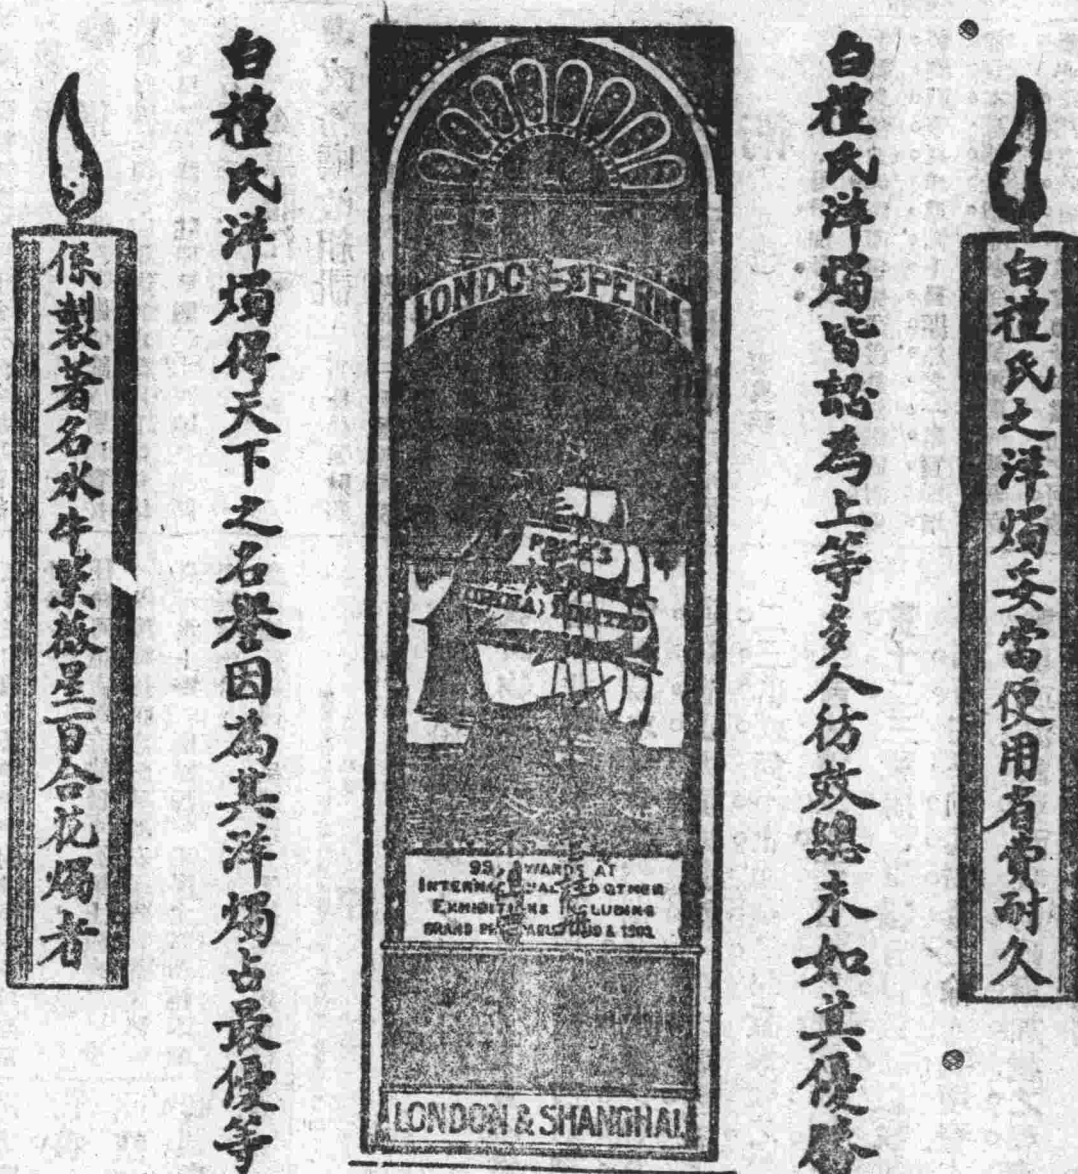 白禮氏之洋燭妥當便用省費耐久
白禮氏洋燭皆認為上等多人彷效總未如其優勝
LONDON SPERM
PRICE'S
(CHINA) LIMITED
99, AWARDS AT
INTERNATIONAL AND OTHER
EXHIBITIONS INCLUDING
GRAND PRIX PARIS 1900 &
LONDON & SHANGHAI
白禮氏洋燭得天下之名譽因為其洋燭占最優等
係製著名水牛紫薇星百合花燭者